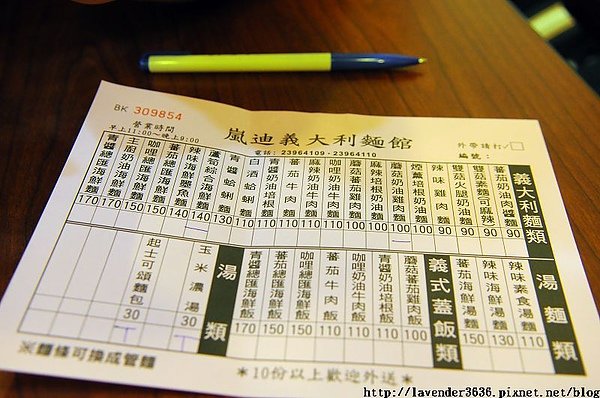 BK 309854
營業時間
早上11:00～晚上9:00
嵐迪義大利麵館
電話：23964109・23964110
外帶請打✓□
編號：
義大利麵類
番茄奶油雞肉麵 90
雙菇素可麻辣 90
雙菇火腿奶油麵 90
辣味雞肉麵 90
煙薰培根麵 100
蘑菇奶油雞肉麵 100
辣味培根麵 100
蘑菇番茄雞肉麵 100
麻辣奶油牛肉麵 110
番茄牛肉麵 110
青醬奶油培根麵 110
白酒蛤蜊麵 110
青醬蛤蜊麵 130
蘆筍綜合海鮮麵 140
番茄總匯墨魚麵 140
咖哩總匯海鮮麵 150
主廚奶油海鮮麵 150
辣味總匯海鮮麵 170
青醬總匯海鮮麵 170
湯麵類
辣味素食湯麵 110
辣味海鮮湯麵 130
番茄海鮮湯麵 150
義式蓋飯類
蘑菇番茄雞肉飯 100
青醬奶油培根飯 110
咖哩奶油牛肉飯 110
番茄牛肉飯 110
咖哩總匯海鮮飯 150
番茄總匯海鮮飯 150
青醬總匯海鮮飯 170
湯類
玉米濃湯 30
起士可頌麵包 30
※麵條可換成管麵
＊10份以上歡迎外送＊
http://lavender3636.pixnet.net/blog